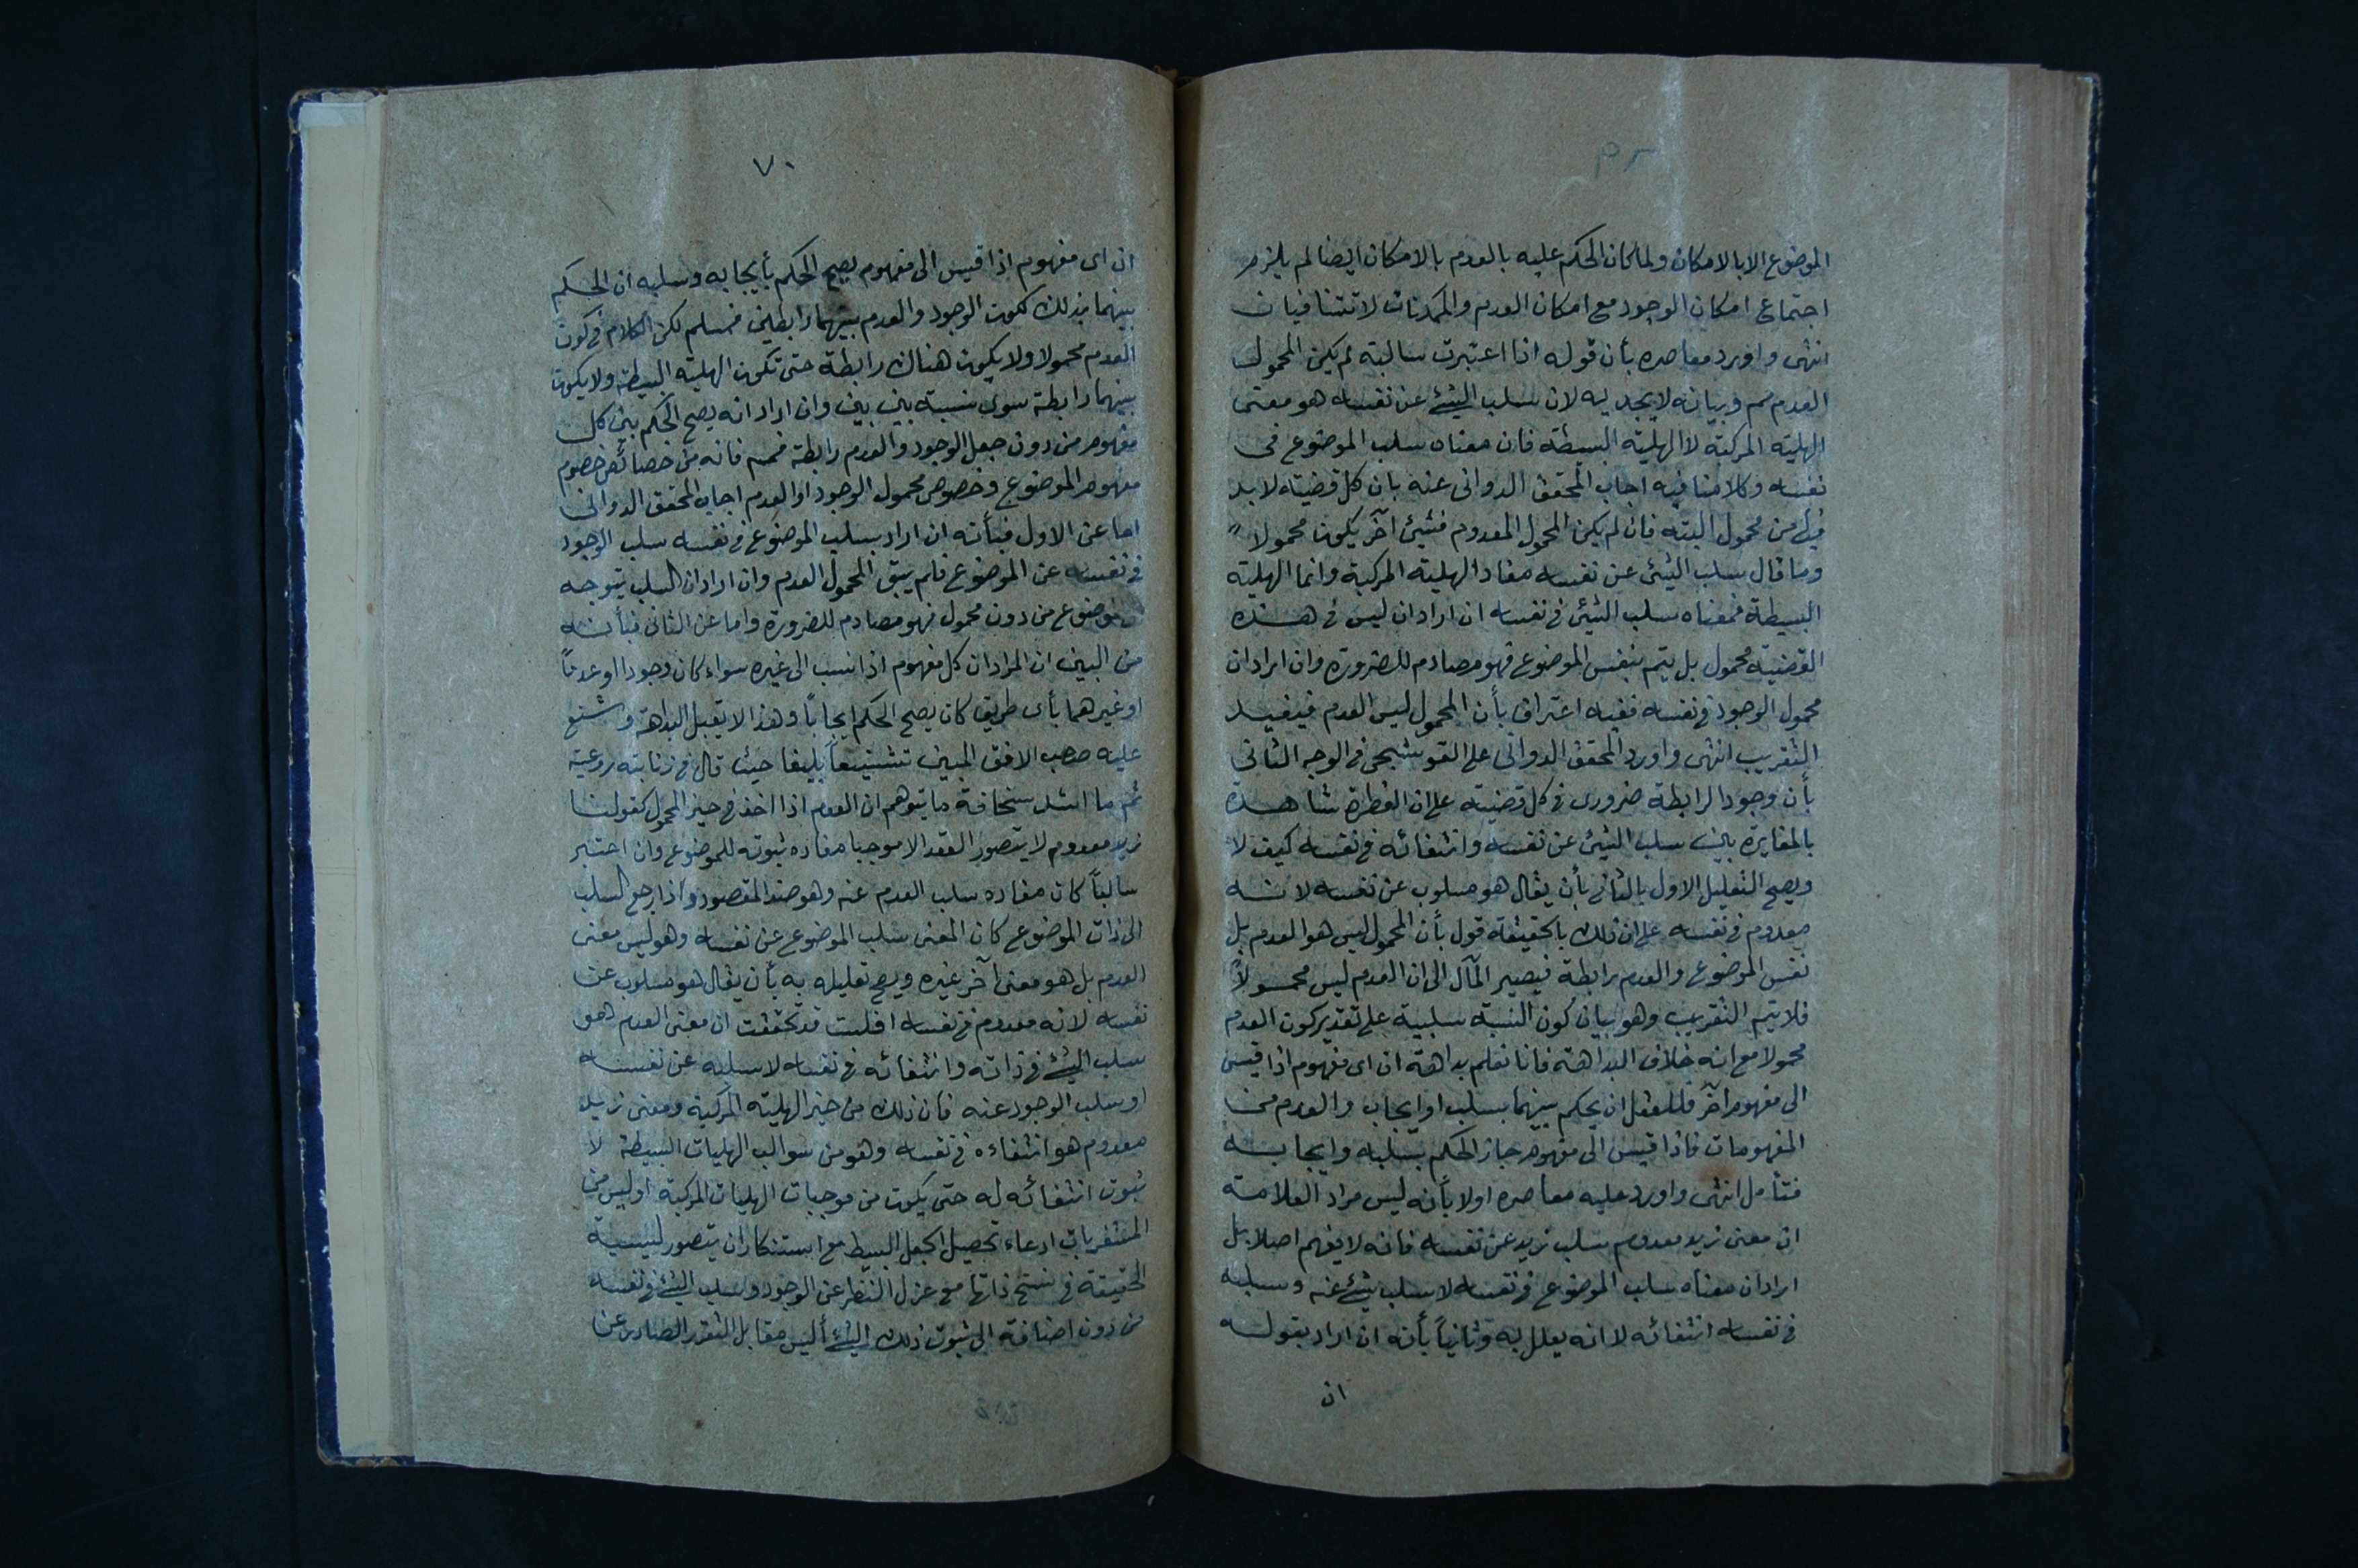 الموضوع الا بالامكان ولما كان الحكم عليه بالعدم بالامكان ايضا لم يلزم
اجتماع امكان الوجود مع امكان العدم والممكنات لا تتنافيان
انتهى واورد معاصره بأن قوله اذا اعتبرت سالبة لم يكن المحمول
العدم مم وبيانه لا يجديه لان سلب الشئ عن نفسه هو معنى
الهلية المركبة لا الهلية البسيطة فان معناه سلب الموضوع فى
نفسه وكلامنا فيه اجاب المحقق الدوانى عنه بان كل قضية لا بد
من محمول البتة فان لم يكن المحمول المعدوم فشيئ آخر يكون محمولا
وما قال سلب الشئ عن نفسه مفاد الهلية المركبة وانما الهلية
البسيطة فمعناه سلب الشئ فى نفسه ان اراد ان ليس فى هذه
القضية محمول بل يتم بنفس الموضوع فهو مصادم للضرورة وان اراد ان
محمول الوجود فى نفسه ففيه اعتراف بأن المحمول ليس العدم فيفيد
التقريب انتهى واورد المحقق الدوانى على القوشجى فى الوجه الثانى
بأن وجود الرابطة ضرورى فى كل قضية على ان الفطرة شاهدة
بالمغايرة بين سلب الشئ عن نفسه وانتفائه فى نفسه كيف لا
ويصح التعليل الاول بالثانى بأن يقال هو مسلوب عن نفسه لانه
معدوم فى نفسه على ان ذلك بالحقيقة قول بأن المحمول ليس هو العدم بل
نفس الموضوع والعدم رابطة فيصير المآل الى ان العدم ليس محمولاً
فلا يتم التقريب وهو بيان كون النسبة سلبية على تقدير كون العدم
محمولا مع انه خلاف البداهة فانا نعلم بداهة ان اى مفهوم اذا قيس
الى مفهوم آخر فللعقل ان يحكم بينهما بسلب او ايجاب والعدم من
المفهومات فاذا قيس الى مفهوم جاز الحكم بسلبه وايجابه
فتأمل انتهى واورد عليه معاصره اولا بأنه ليس مراد العلامة
ان معنى زيد معدوم سلب زيد عن نفسه فانه لا يفهم اصلا بل
اراد ان معناه سلب الموضوع فى نفسه لا سلب شئ عنه وسلبه
فى نفسه انتفائه لا انه يعلل به وثانياً بأنه ان اراد بقوله
ان
٧٠
ان اى مفهوم اذا قيس الى مفهوم يصح الحكم بأيجابه وسلبه ان الحكم
بينهما بذلك ككون الوجود والعدم بينهما رابطين فمسلم لكن الكلام فى كون
العدم محمولا ولا يكون هناك رابطة حتى تكون الهلية البسيطة ولا يكون
بينهما رابطة سوى نسبة بين بين وان اراد انه يصح الحكم بين كل
مفهوم من دون جعل الوجود والعدم رابطة فمم فانه من خصائص خصوم
مفهوم الموضوع وخصوص محمول الوجود او العدم اجاب المحقق الدوانى
اما عن الاول فبأنه ان اراد بسلب الموضوع فى نفسه سلب الوجود
فى نفسه عن الموضوع فلم يبق المحمول العدم وان اراد ان السلب يتوجه
موضوع من دون محمول فهو مصادم للضرورة واما عن الثانى فبأنه
من البين ان المراد ان كل مفهوم اذا نسب الى غيره سواء كان وجودا او عدماً
او غيرهما بأى طريق كان يصح الحكم ايجاباً وهذا لا يقبل البداهة وشنع
عليه صحب الافق المبين تشنيعاً بليغا حيث قال فى
ثم ما اشد سخافة ما يتوهم ان العدم اذا اخذ فى حيز المحمول كقولنا
زيد معدوم لا يتصور العقد الا موجبا مفاده ثبوته للموضوع وان اعتبر
سالباً كان مفاده سلب العدم عنه وهو ضد المقصود واذا رجع السلب
الى ذات الموضوع كان المعنى سلب الموضوع عن نفسه وهو ليس معنى
العدم بل هو معنى آخر غيره ويصح تعليله به بأن يقال هو مسلوب عن
نفسه لانه معدوم فى نفسه افلست قد تحققت ان معنى العدم هو
سلب الشئ فى ذاته وانتفائه فى نفسه لا سلبه عن نفسه
او سلب الوجود عنه فان ذلك من حيز الهلية المركبة ومعنى زيد
معدوم هو انتفاءه فى نفسه وهو من سوالب الهليات البسيطة لا
ثبوت انتفائه له حتى يكون من موجبات الهليات المركبة اوليس من
المتغربات ادعاء تحصيل الجعل البسيط مع استنكار ان يتصور ليسية
الحقيقة فى سنخ ذاتها مع عزل النظر عن الوجود وسلب الشئ فى نفسه
من دون اضافة الى ثبوت ذلك الشئ أليس مقابل التقرر الصادر عن